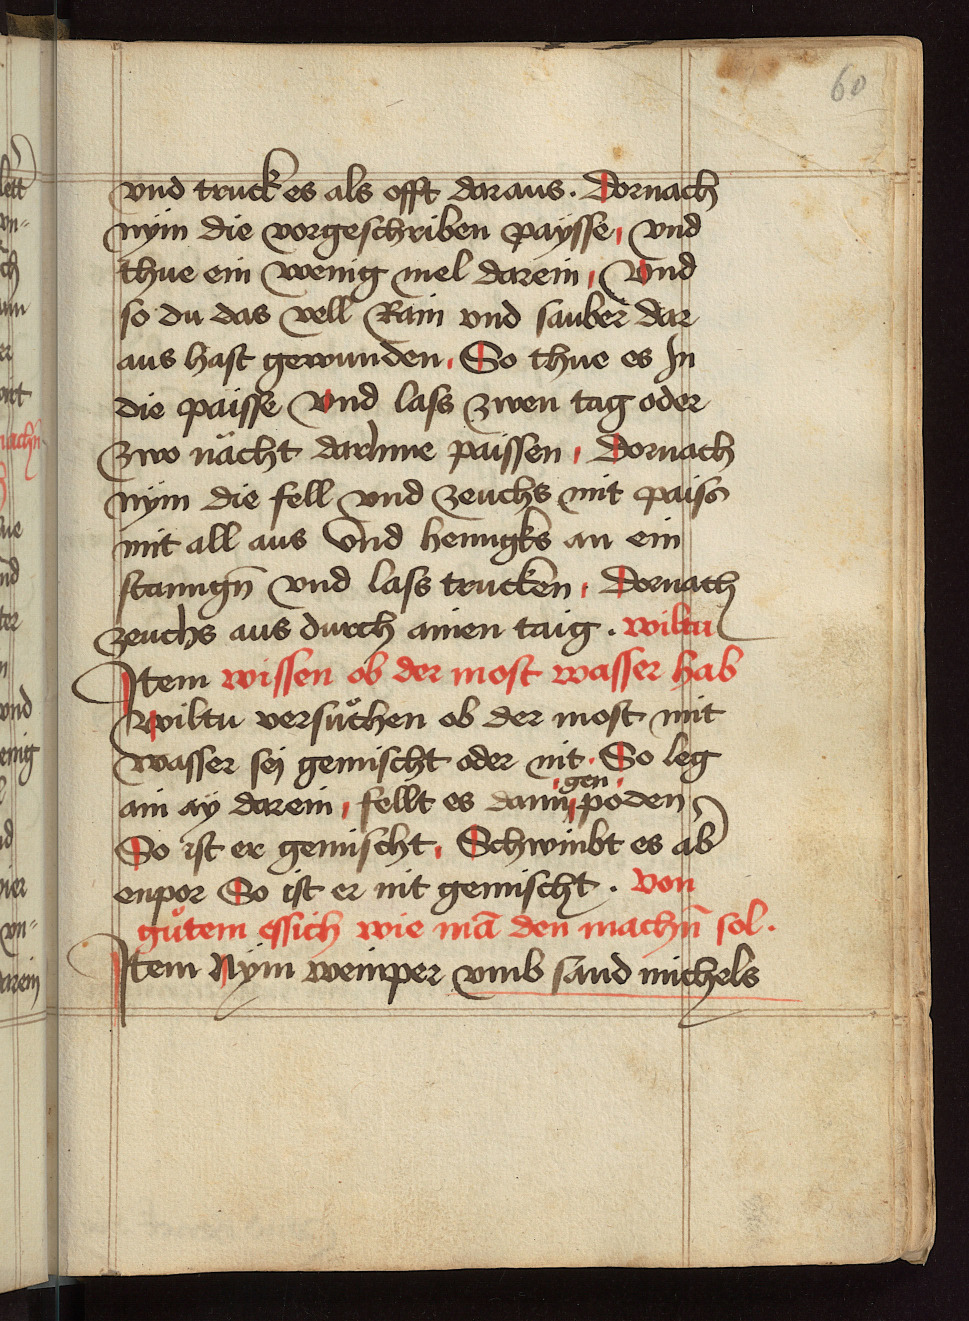 60
vnd truck es als offt daraus. Dornach
nym die vorgeschriben paysse, vnd
thue ein wenig mel darein, Vnd
so du das vell Rain vnd sauber dar
aus hast gewunden. So thue es In
die paisse Vnd lass zwen tag oder
zwo nächt darInne paissen, Dornach
nym die fell vnd zeuchs mit paiss
mit all aus Vnd henngks an ein
stanngn̄ vnd lass trucken, Dornach
zeuchs aus durch ainen taig. wiltu
Item wissen ob der most wasser hab
wiltu versůchen ob der most mit
wasser sej gemischt oder nit. So leg
gen
ain ay darein, fellt es dann poden
So ist er gemischt. Schwinbt es ab̄
enpor So ist er nit gemischt. von
gůtem essich wie mā den machn̄ sol.
Item Nym weinper vmb sand michels